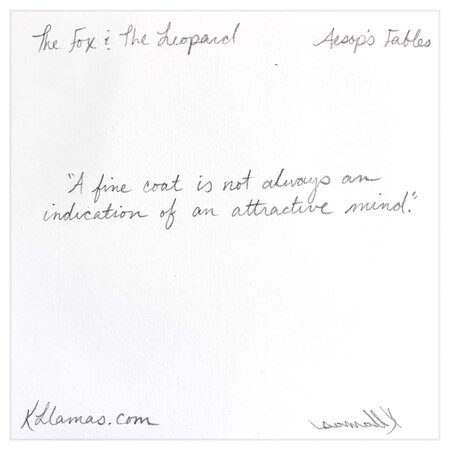 The Fox & The Leopard Aesop's Fables
"A fine coat is not always an
indication of an attractive mind."
KLlamas.com KLlamas